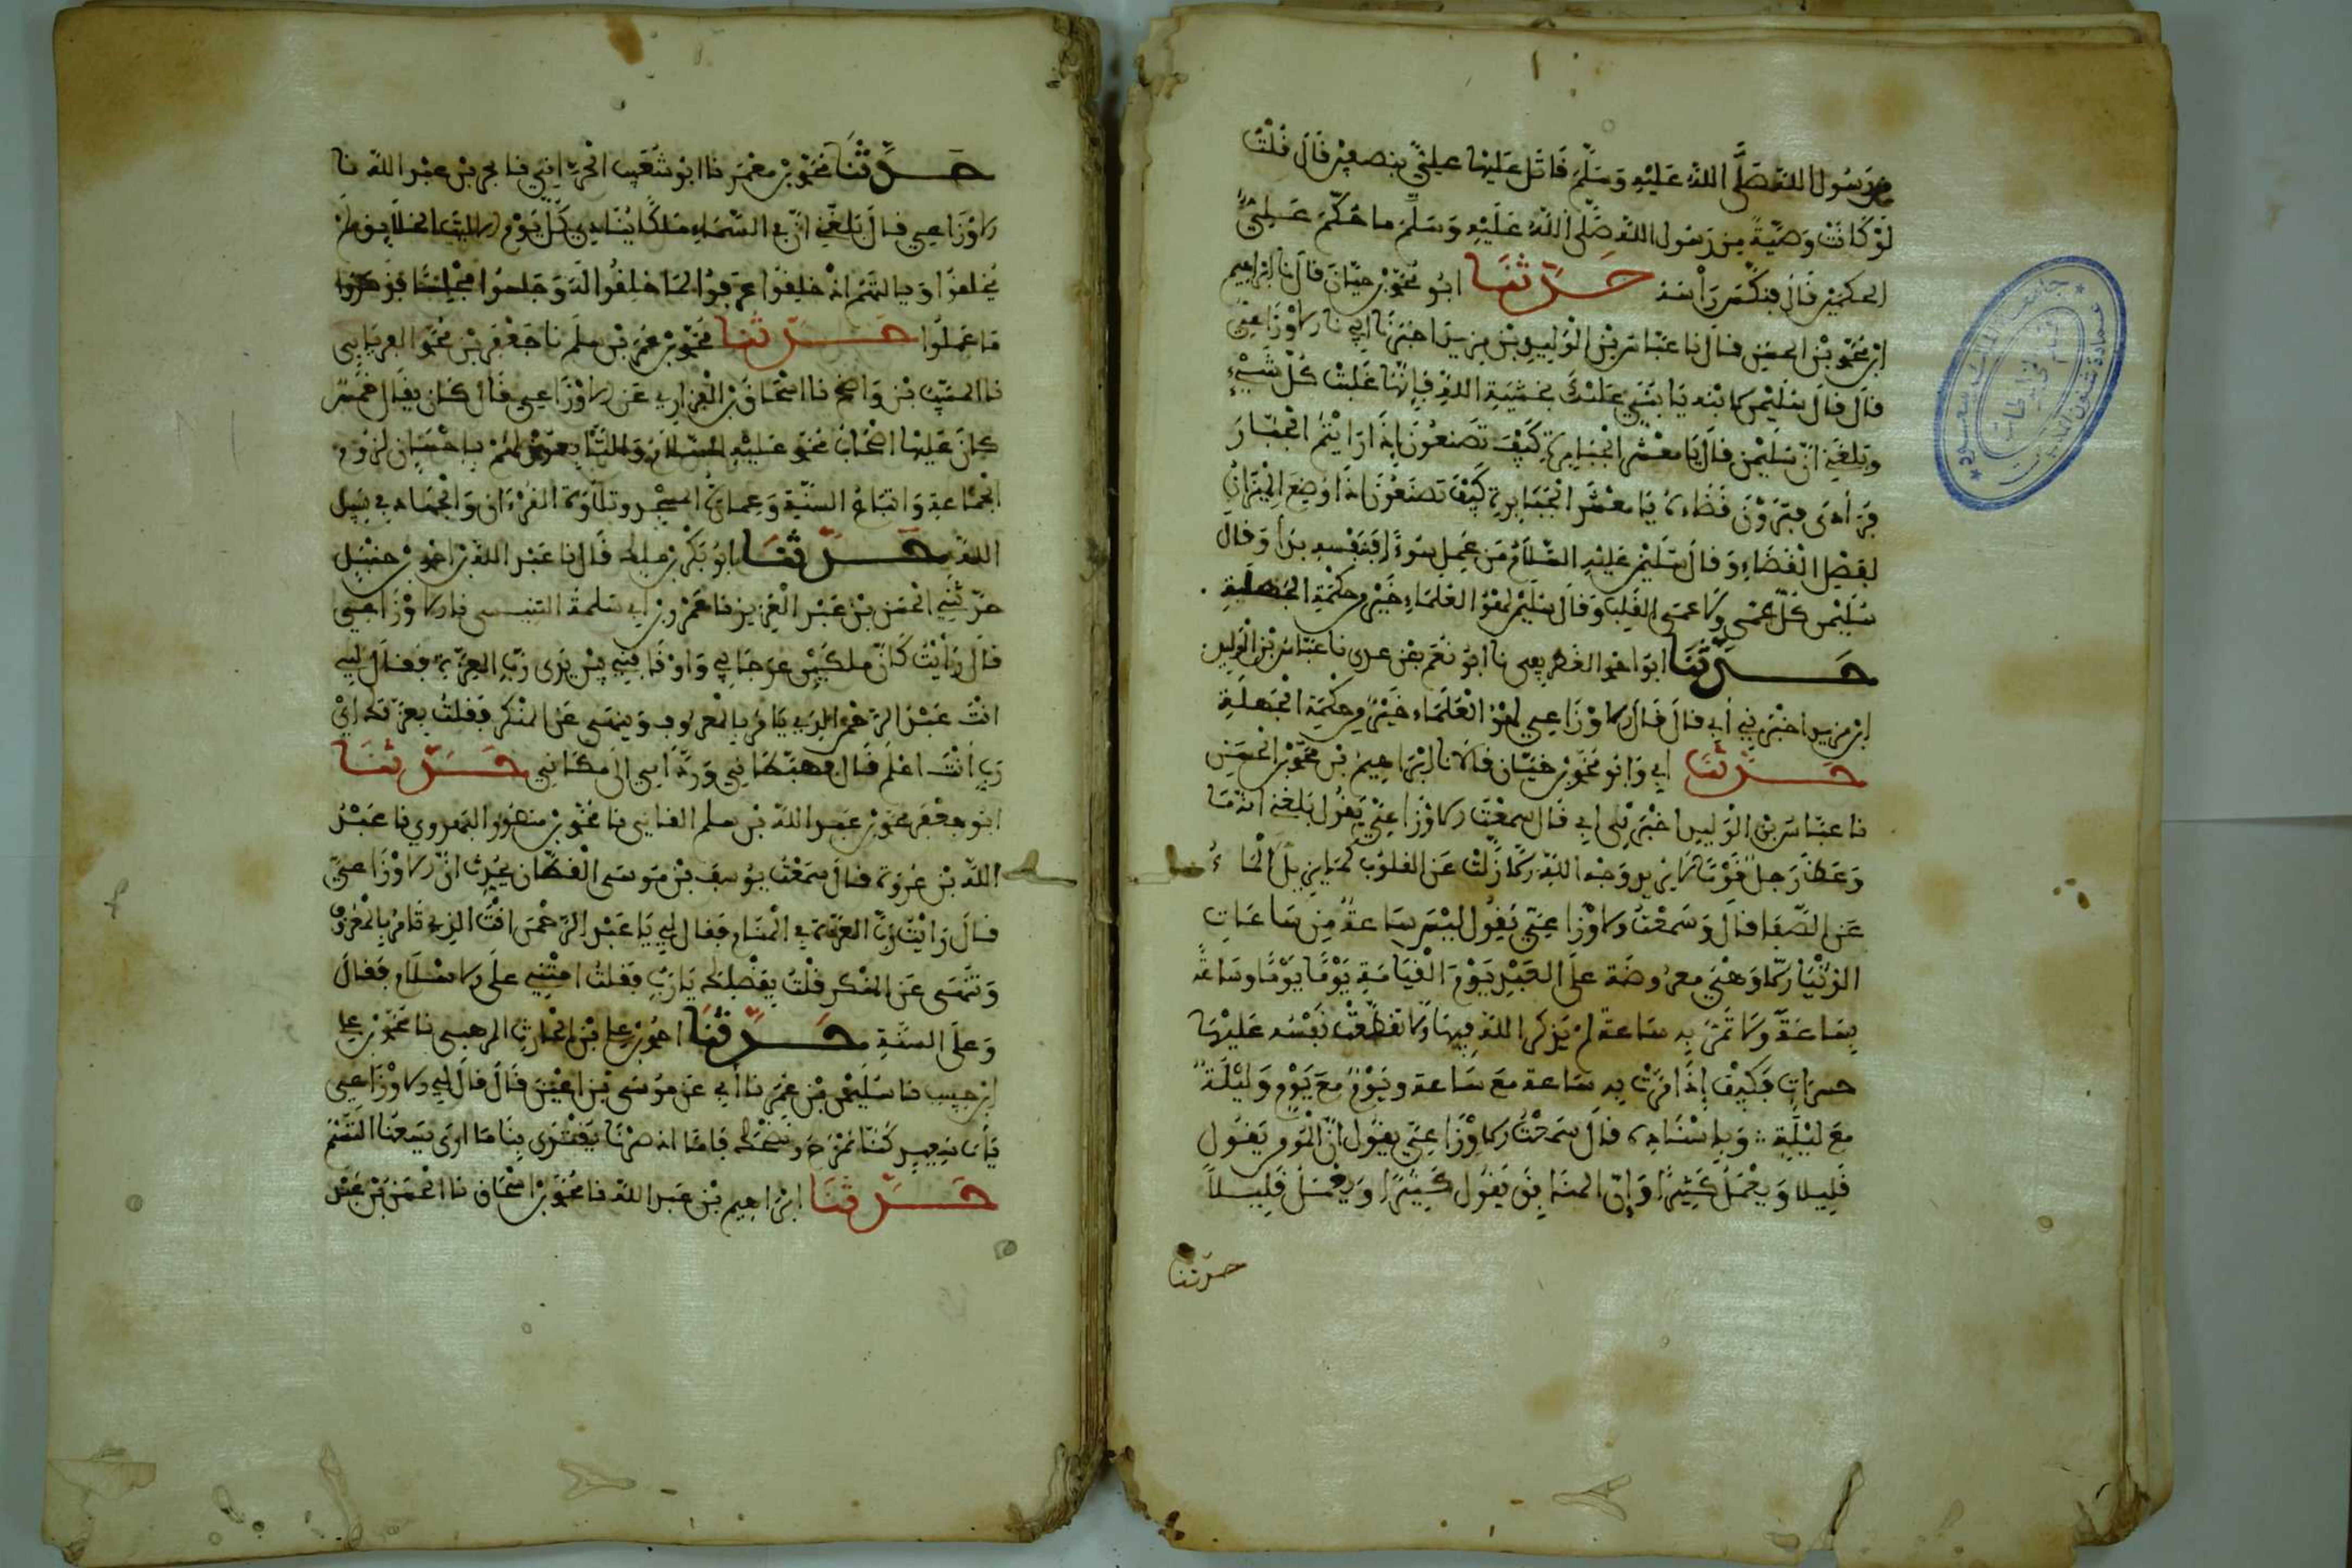 رسول الله صلى الله عليه وسلم قاتل عليها علي بنصفين قال قلت
لو كانت وصية من رسول الله صلى الله عليه وسلم ما حكم علي
الحكمين قال فنكس رأسه حدثنا ابو محمد بن حيان قال نا ابراهيم
ابن محمد بن الحسن قال نا عباس بن الوليد بن مزيد اخبرنا ابي نا الاوزاعي
قال قال سليمن لابنه يا بني عليك بخشية الله فإنها غلبت كل شيء
وبلغني ان سليمن قال يا معشر الجبابرة كيف تصنعون إذا رايتم الجبار
قضاءه يا معشر الجبابرة كيف تصنعون اذا وضع الميزان
لفصل القضاء وقال سليمن عليه السلام من عمل سوءا فبنفسه بدأ وقال
سليمن كل عمى ولا عمى القلب وقال سليمن لهو العلماء خير من حكمة الجهلة
حدثنا ابو احمد نا ابو نعيم بن عدي نا عباس بن الوليد
ابن مزيد اخبرني أبي قال قال الاوزاعي لهو العلماء خير من حكمة الجهلة
حدثنا ابي وابو محمد بن حيان قالا نا ابراهيم بن محمد بن الحسن
نا عباس بن الوليد اخبرني ابي قال سمعت الاوزاعي يقول بلغني انه ما
وعظ رجل قوما لا يريد وجه الله الا زلت عن القلوب كما يزل الماء
عن الصفا قال وسمعت الاوزاعي يقول ليس ساعة من ساعات
الدنيا الا وهي معروضة على العبد يوم القيامة يوما يوما وساعة
بساعة ولا تمر به ساعة لم يذكر الله فيها الا تقطعت نفسه عليها
حسرات فكيف إذا مرت به ساعة مع ساعة ويوم مع يوم وليلة
مع ليلة وبإسناده قال سمعت الاوزاعي يقول ان المؤمن يقول
قليلا ويعمل كثيرا وإن المنافق يقول كثيرا ويعمل قليلا
حدثنا
حدثنا محمد بن معمر نا ابو شعيب الحراني نا يحي بن عبد الله نا
الاوزاعي قال بلغني ان في السماء ملكا ينادي كل يوم الا ليت الخلايق لم
يخلقوا ويا ليتهم اذ خلقوا عرفوا لما خلقوا له وجلسوا مجلسا فذكروا
ما عملوا حدثنا محمد بن عمر بن سلم نا جعفر بن محمد الفريابي
نا المسيب بن واضح نا ابو اسحاق الفزاري عن الاوزاعي قال كان يقال خمس
كان عليها اصحاب محمد عليه السلام والتابعون لهم باحسان لزوم
الجماعة واتباع السنة وعمارة المسجد وتلاوة القرءان والجهاد في سبيل
الله حدثنا ابو بكر بن ملك قال نا عبد الله بن احمد بن حنبل
حدثني الحسن بن عبد العزيز نا عمرو بن ابي سلمة التنيسي نا الاوزاعي
قال رأيت كأن ملكين عرجا بي واوقفاني بين يدي رب العزة فقال لي
انت عبد الرحمن الذي يامر بالمعروف وينهى عن المنكر فقلت بعزتك اي
رب أنت اعلم قال فهبطا بي ورداني الى مكاني حدثنا
ابو جعفر محمد بن عبد الله بن سلم القايني نا محمد بن منصور الهروي نا عبد
الله بن عروة قال سمعت يوسف بن موسى القطان يحدث ان الاوزاعي
قال رايت رب العزة في المنام فقال لي يا عبد الرحمن انت الذي تامر بالمعروف
وتنهى عن المنكر قلت بفضلك يا رب فقلت امتني على الاسلام فقال
وعلى السنة حدثنا احمد بن علي بن الحارث المرهبي نا محمد بن علي
ابن حبيب نا سليمن بن عمر نا أبي عن موسى بن اعين قال قال لي الاوزاعي
يا ابا سعيد كنا نمزح ونضحك فاما اذ صرنا يقتدى بنا ما ارى يسعنا التبسم
حدثنا ابراهيم بن عبد الله نا محمد بن اسحاق نا الحسن بن عبد